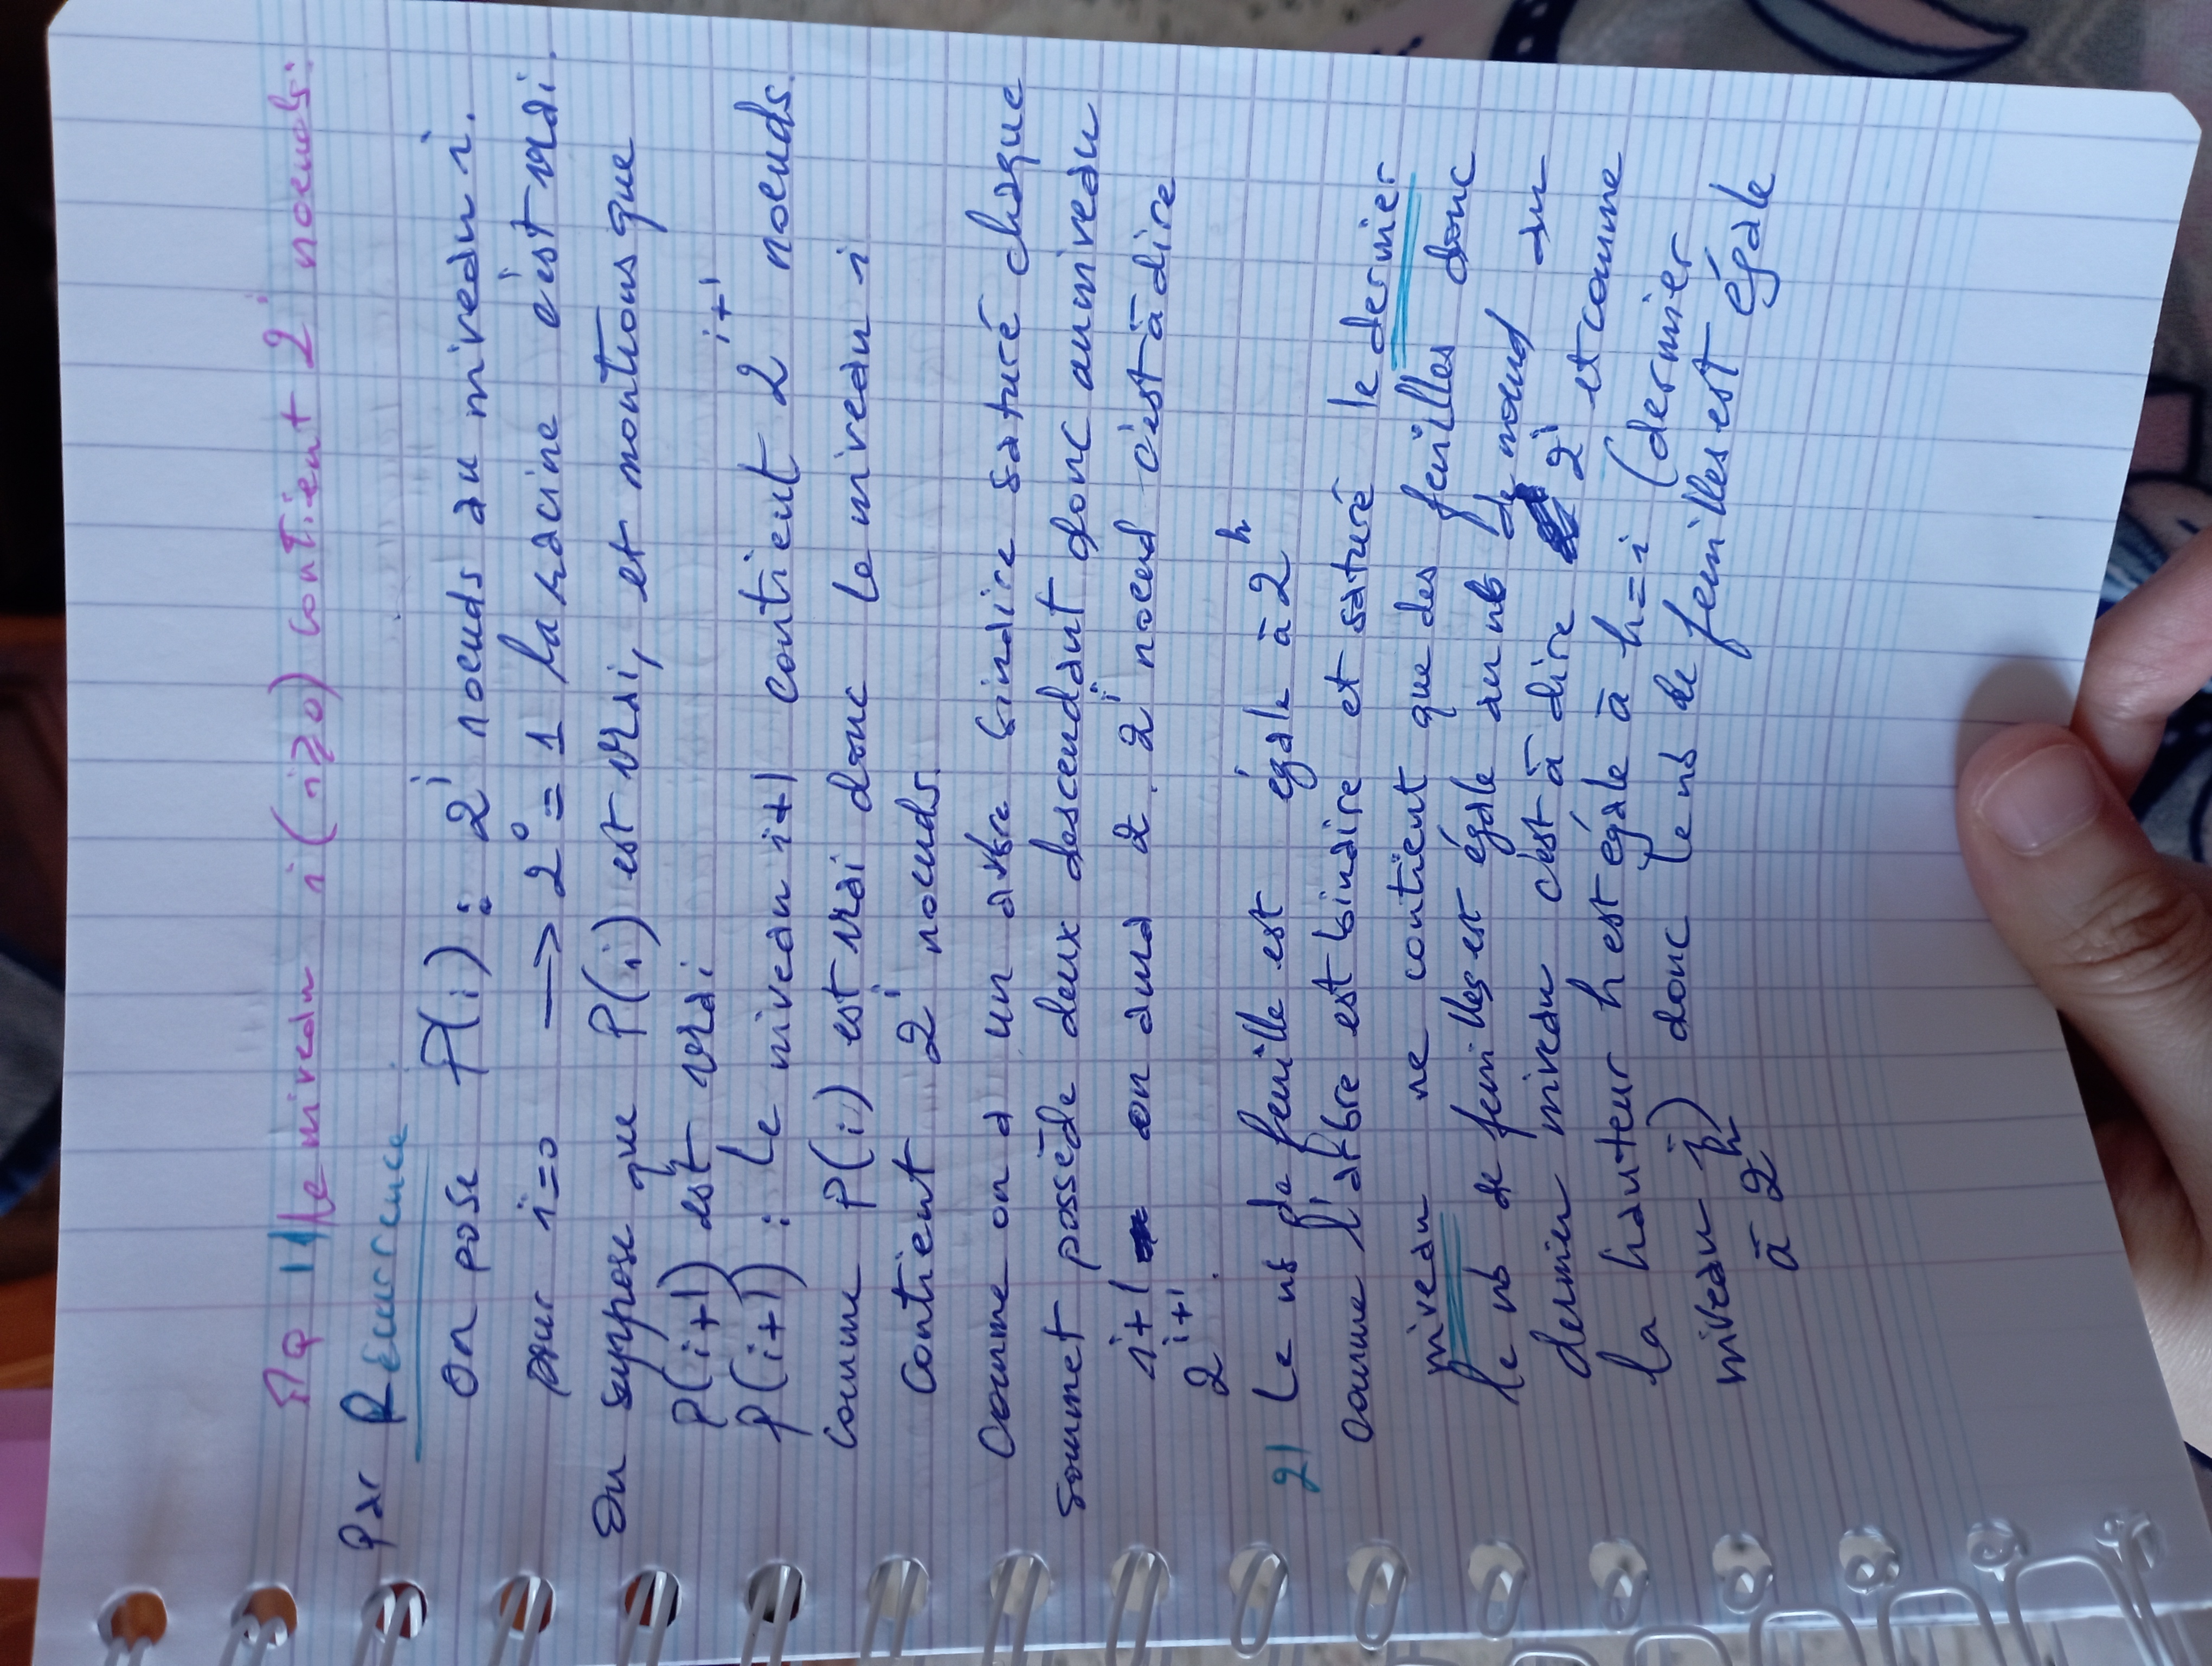 Mq 1) Le niveau i (i≥0) contient 2^i noeuds:
Par Récurrence :
on pose P(i) : 2^i noeuds au niveau i.
pour i=0 → 2^0 = 1 la racine c'est vrai.
On suppose que P(i) est vrai, et montrons que
P(i+1) est vrai
P(i+1) : Le niveau i+1 contient 2^{i+1} noeuds.
comme P(i) est vrai donc le niveau i
contient 2^i noeuds.
Comme on a un arbre binaire saturé chaque
sommet possède deux descendant donc au niveau
i+1 on aura 2 . 2^i noeud c'est à dire
2^{i+1}.
2) Le nb de feuille est égale à 2^h
comme l'arbre est binaire et saturé le dernier
niveau ne contient que des feuilles donc
le nb de feuilles est égale au nb de noeud au
dernier niveau c'est à dire 2^i et comme
la hauteur h est égale à h=i (dernier
niveau i) donc le nb de feuilles est égale
à 2^h